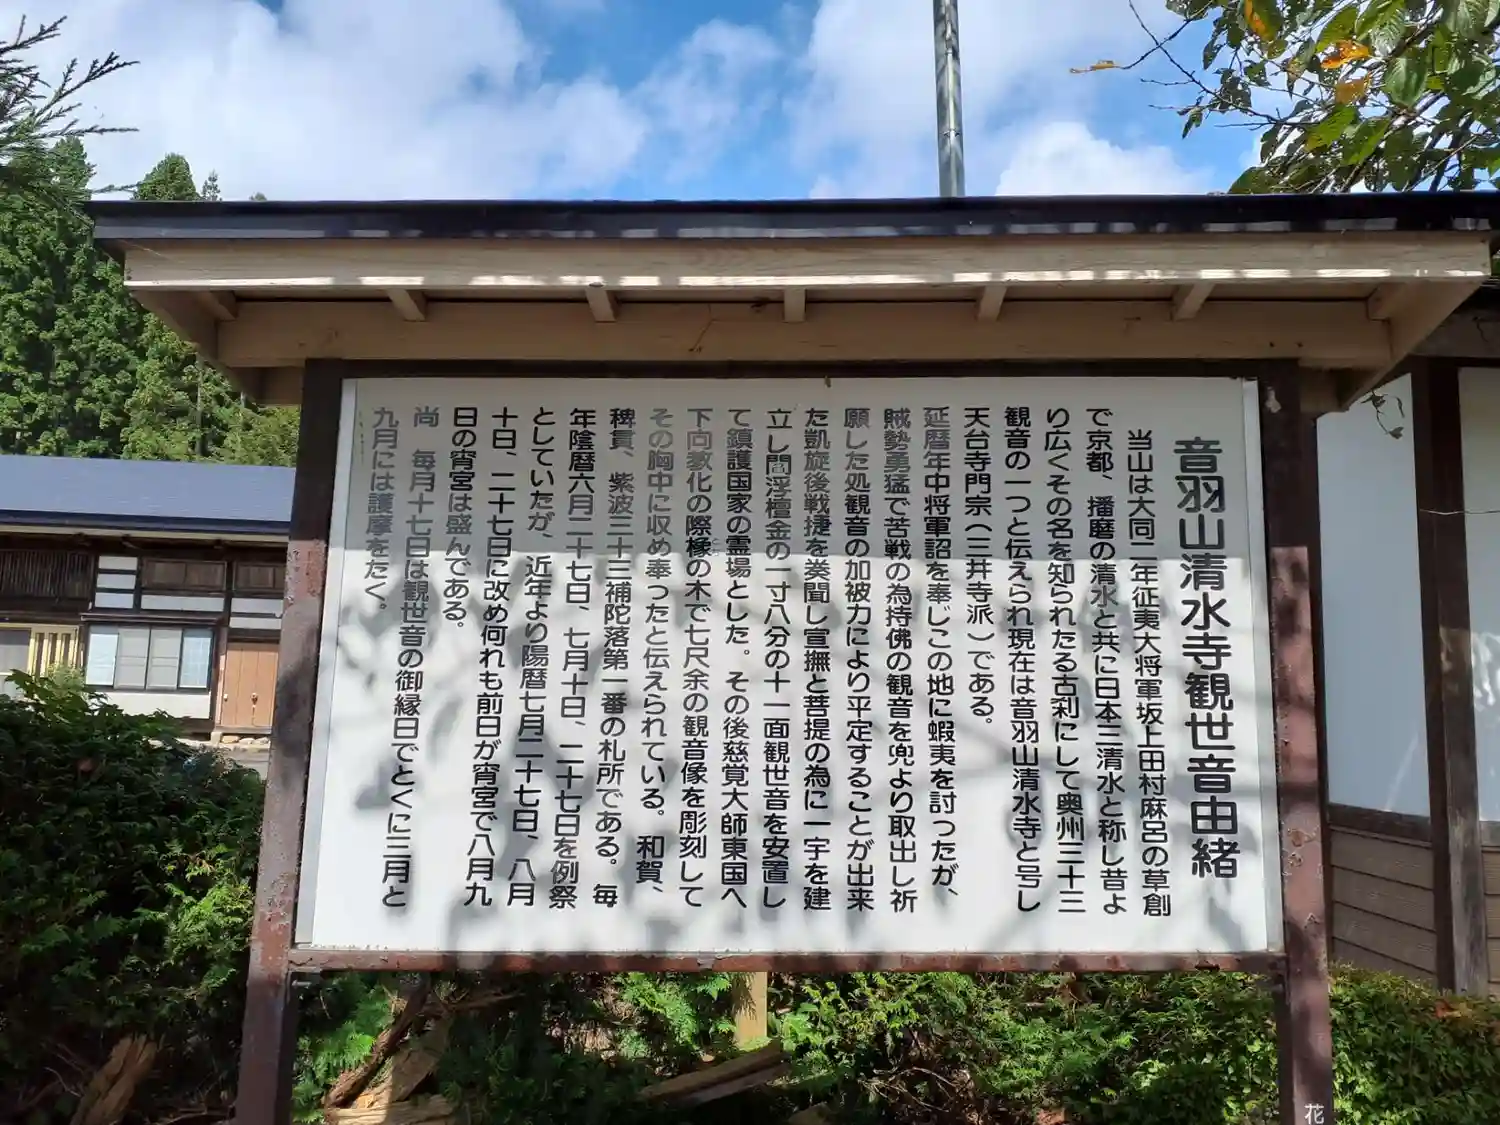 音羽山清水寺観世音由緒
当山は大同二年征夷大将軍坂上田村麻呂の草創
で京都、播磨の清水と共に日本三清水と称し昔よ
り広くその名を知られたる古刹にして奥州三十三
観音の一つと伝えられ現在は音羽山清水寺と号し
天台寺門宗(三井寺派)である。
延暦年中将軍詔を奉じこの地に蝦夷を討ったが、
賊勢勇猛で苦戦の為持佛の観音を兜より取出し祈
願した処観音の加被力により平定することが出来
た凱旋後戦捷を奏聞し宣撫と菩提の為に一宇を建
立し閻浮檀金の一寸八分の十一面観世音を安置し
て鎮護国家の霊場とした。その後慈覚大師東国へ
下向教化の際橡の木で七尺余の観音像を彫刻して
その胸中に収め奉ったと伝えられている。和賀、
稗貫、紫波三十三補陀落第一番の札所である。毎
年陰暦六月二十七日、七月十日、二十七日を例祭
としていたが、近年より陽暦七月二十七日、八月
十日、二十七日に改め何れも前日が宵宮で八月九
日の宵宮は盛んである。
尚 毎月十七日は観世音の御縁日でとくに三月と
九月には護摩をたく。
花